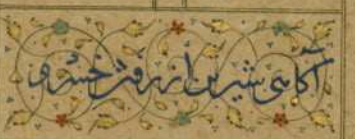 آگاهی شیرین از رفتن خسرو